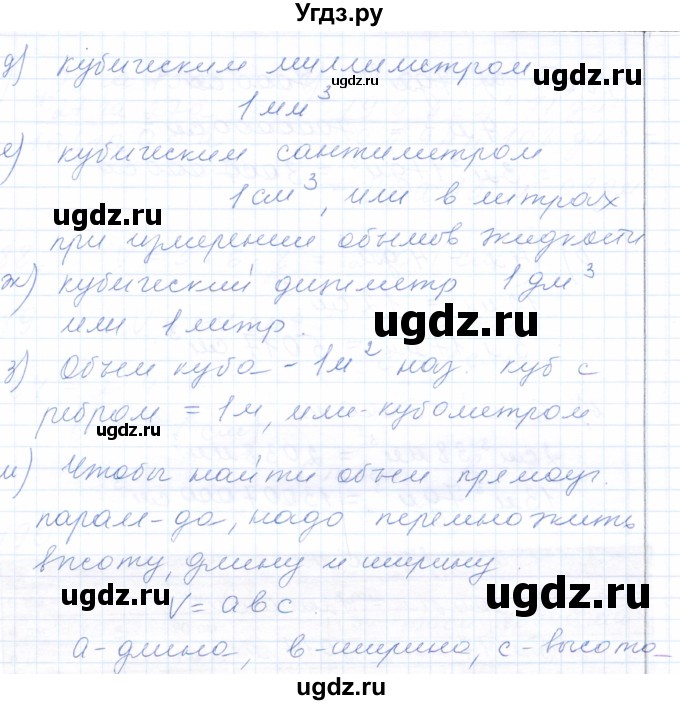 Угдз.ру
д) кубическим миллиметром
ugdz.ru
1 мм³
ugdz.ru
е) кубическим сантиметром
1 см³, или в литрах
ugdz.ru
при измерении объёмов жидкости
ugdz.ru
ж) кубический дециметр 1 дм³
или 1 литр.
ugdz.ru
з) Объем куба - 1м² наз. куб с
ребром = 1м, или - кубометром
ugdz.ru
ugdz.ru
и) Чтобы найти объем прямоуг.
парал-да, надо перемножить
ugdz.ru
высоту, длину и ширину.
ugdz.ru
V = a b c.
ugdz.ru
а-длина, в-ширина, с-высота
ugdz.ru
ugdz.ru